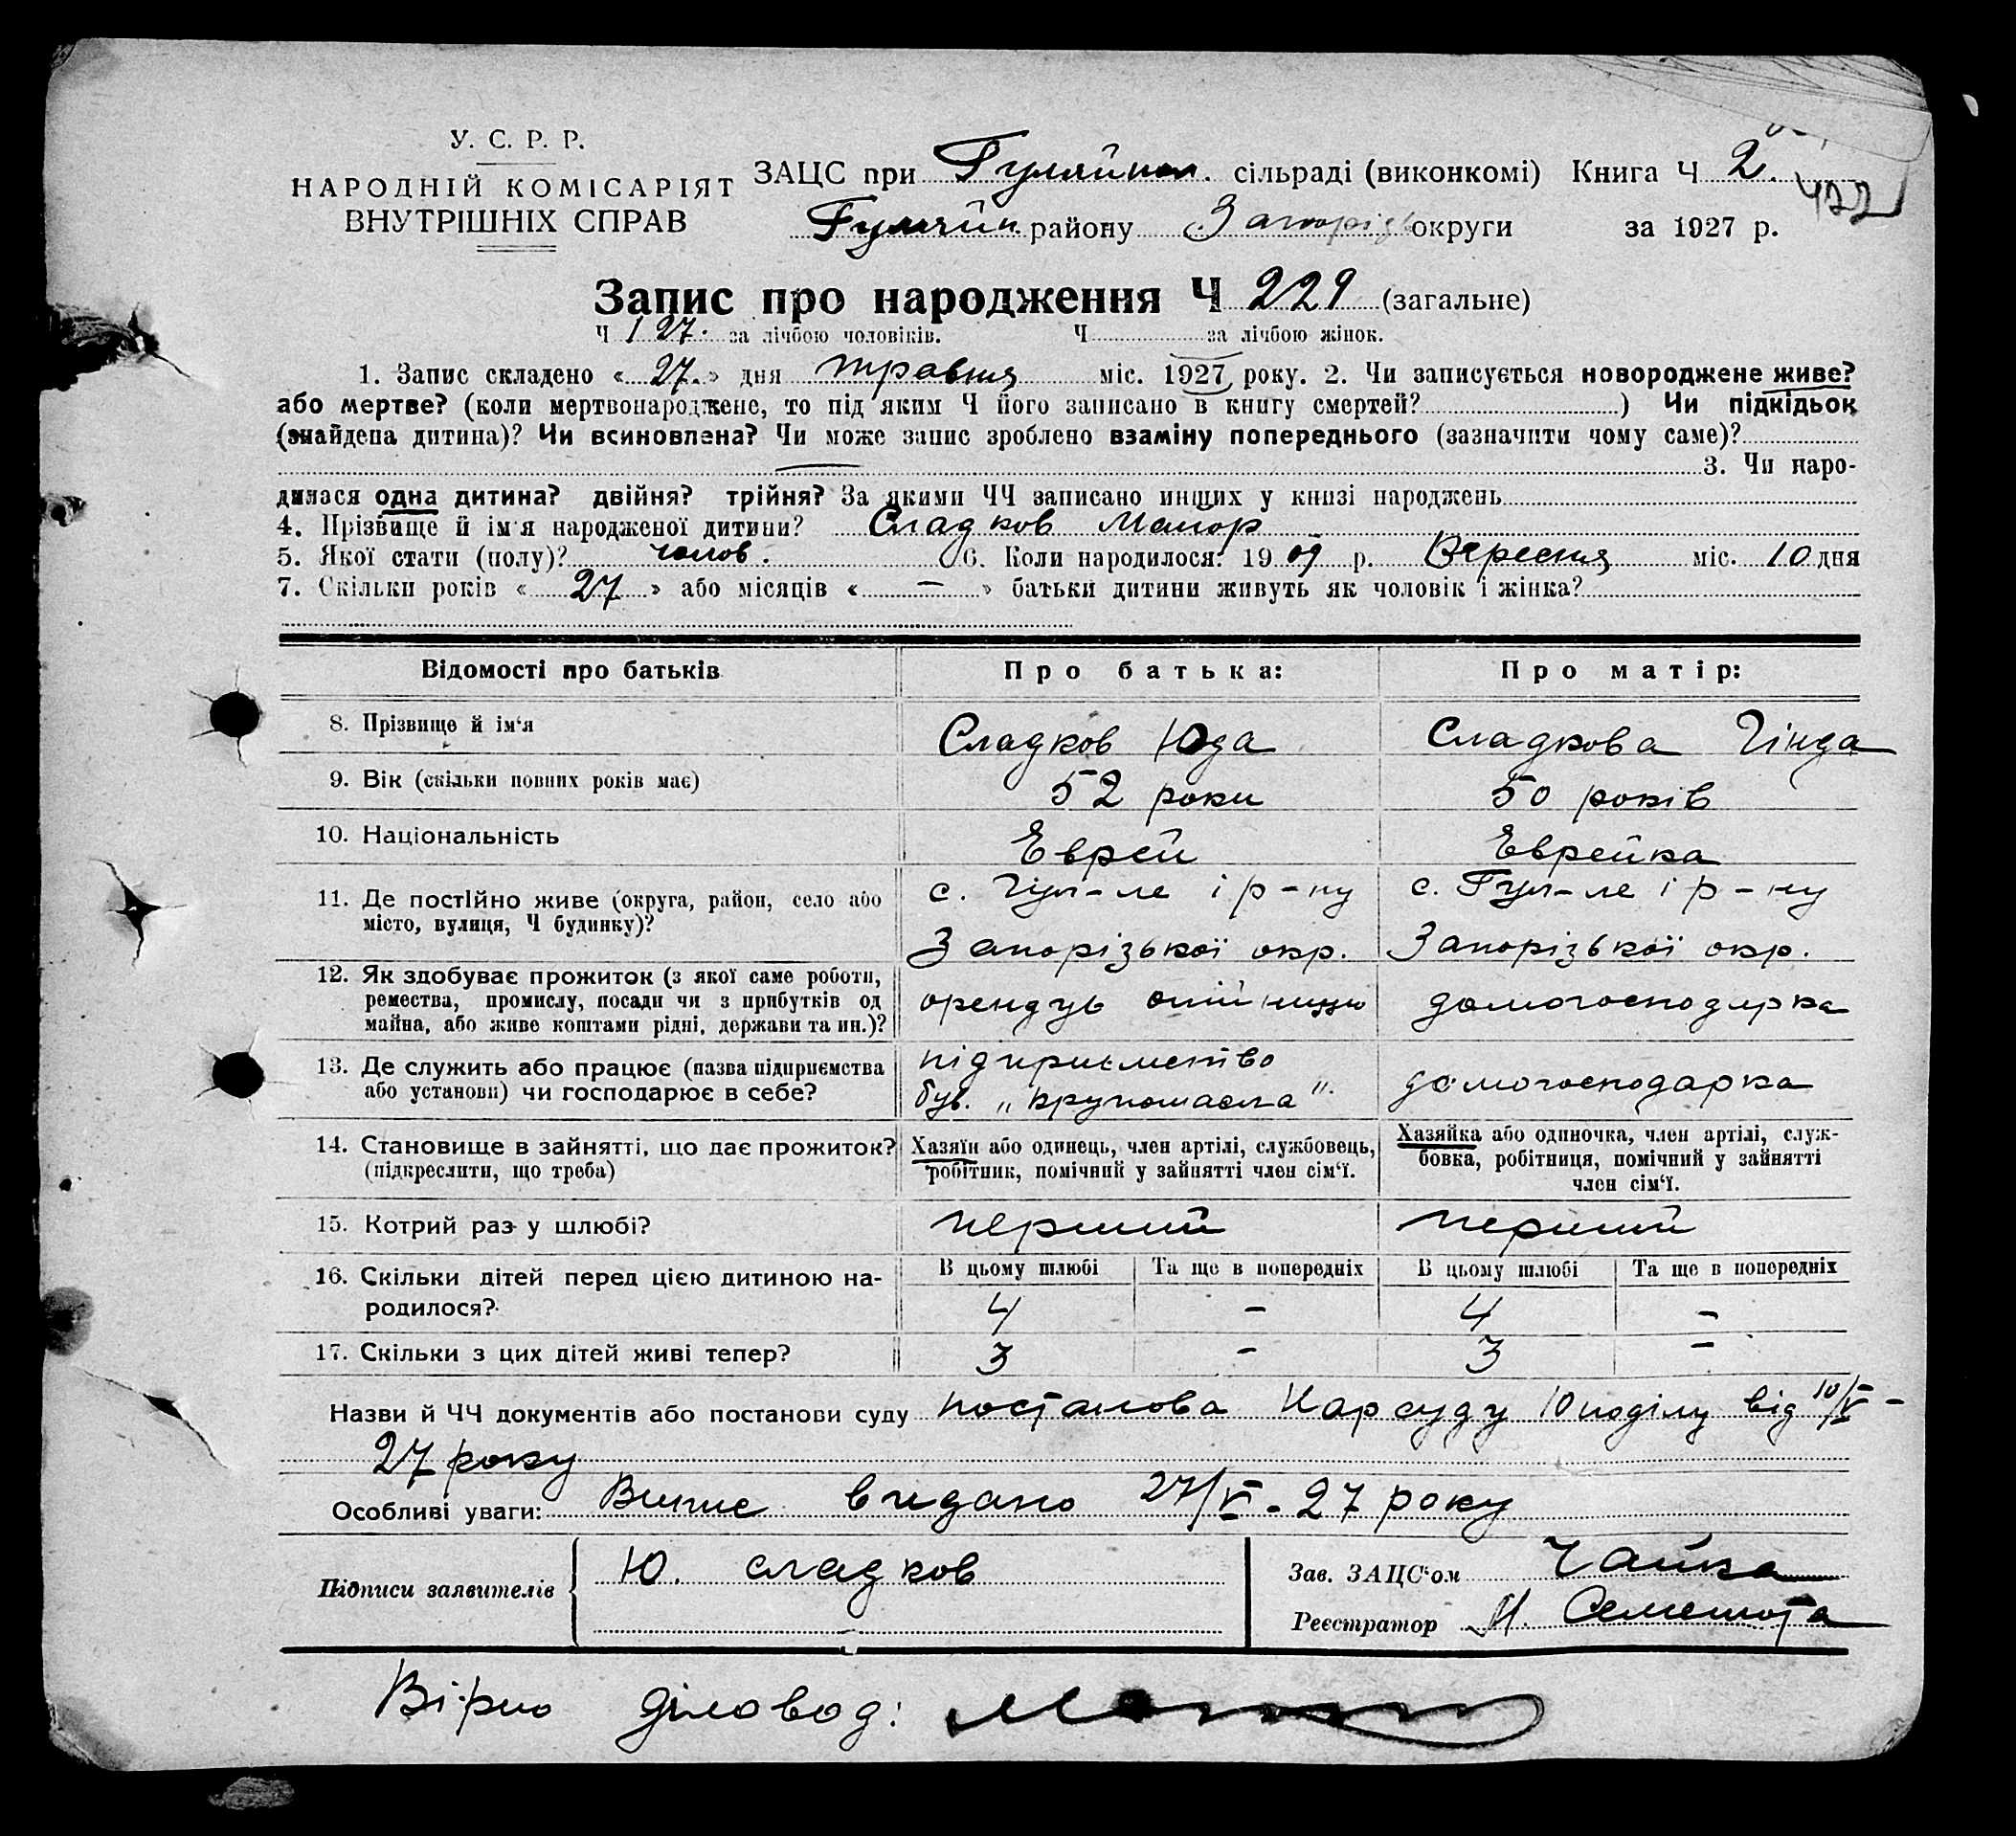 У. С. Р. Р.
НАРОДНІЙ КОМІСАРІЯТ
ВНУТРІШНІХ СПРАВ
ЗАЦС при Гуляйпол. сільраді (виконкомі) Книга Ч 2.
422
Гуляйп. району Запорізь округи за 1927 р.
Запис про народження Ч 229 (загальне)
Ч 127. за лічбою чоловіків. Ч за лічбою жінок.
1. Запис складено «27.» дня травня міс. 1927 року. 2. Чи записується новороджене живе?
або мертве? (коли мертвонароджене, то під яким Ч його записано в книгу смертей? ) Чи підкідьок
(знайдена дитина)? Чи всиновлена? Чи може запис зроблено взаміну попереднього (зазначити чому саме)?
— 3. Чи наро-
дилася одна дитина? двійня? трійня? За якими ЧЧ записано инщих у книзі народжень
4. Прізвище й ім'я народженої дитини? Сладков Маіор
5. Якої стати (полу)? чолов. 6. Коли народилося? 1909 р. Вересня міс. 10 дня
7. Скільки років «27» або місяців «—» батьки дитини живуть як чоловік і жінка?
Відомості про батьків Про батька: Про матір:
8. Прізвище й ім'я Сладков Юда Сладкова Гінда
9. Вік (скільки повних років має) 52 роки 50 років
10. Національність Еврей Еврейка
11. Де постійно живе (округа, район, село або
місто, вулиця, Ч будинку)?
с. Гул-ле і р-ну
Запорізької окр.
с. Гул-ле і р-ну
Запорізької окр.
12. Як здобуває прожиток (з якої саме роботи,
ремества, промислу, посади чи з прибутків од
майна, або живе коштами рідні, держави та ин.)?
орендує олійницю
домогосподарка
13. Де служить або працює (назва підприємства
або установи) чи господарює в себе?
підприємство
був. „Крупомасла".
домогосподарка
14. Становище в зайнятті, що дає прожиток?
(підкреслити, що треба)
Хазяїн або одинець, член артілі, службовець,
робітник, помічний у зайнятті член сім'ї.
Хазяйка або одиночка, член артілі, служ-
бовка, робітниця, помічний у зайнятті
член сім'ї.
15. Котрий раз у шлюбі? перший перший
16. Скільки дітей перед цією дитиною на-
родилося?
В цьому шлюбі Та ще в попередніх В цьому шлюбі Та ще в попередніх
4 — 4 —
17. Скільки з цих дітей живі тепер? 3 — 3 —
Назви й ЧЧ документів або постанови суду постанова Нарсуду 10 поділу від 10/V-
27 року
Особливі уваги: Випис видано 27/V-27 року
Підписи заявителів Ю. Сладков
Зав. ЗАЦС'ом Чайка
Реєстратор
Вірно діловод: